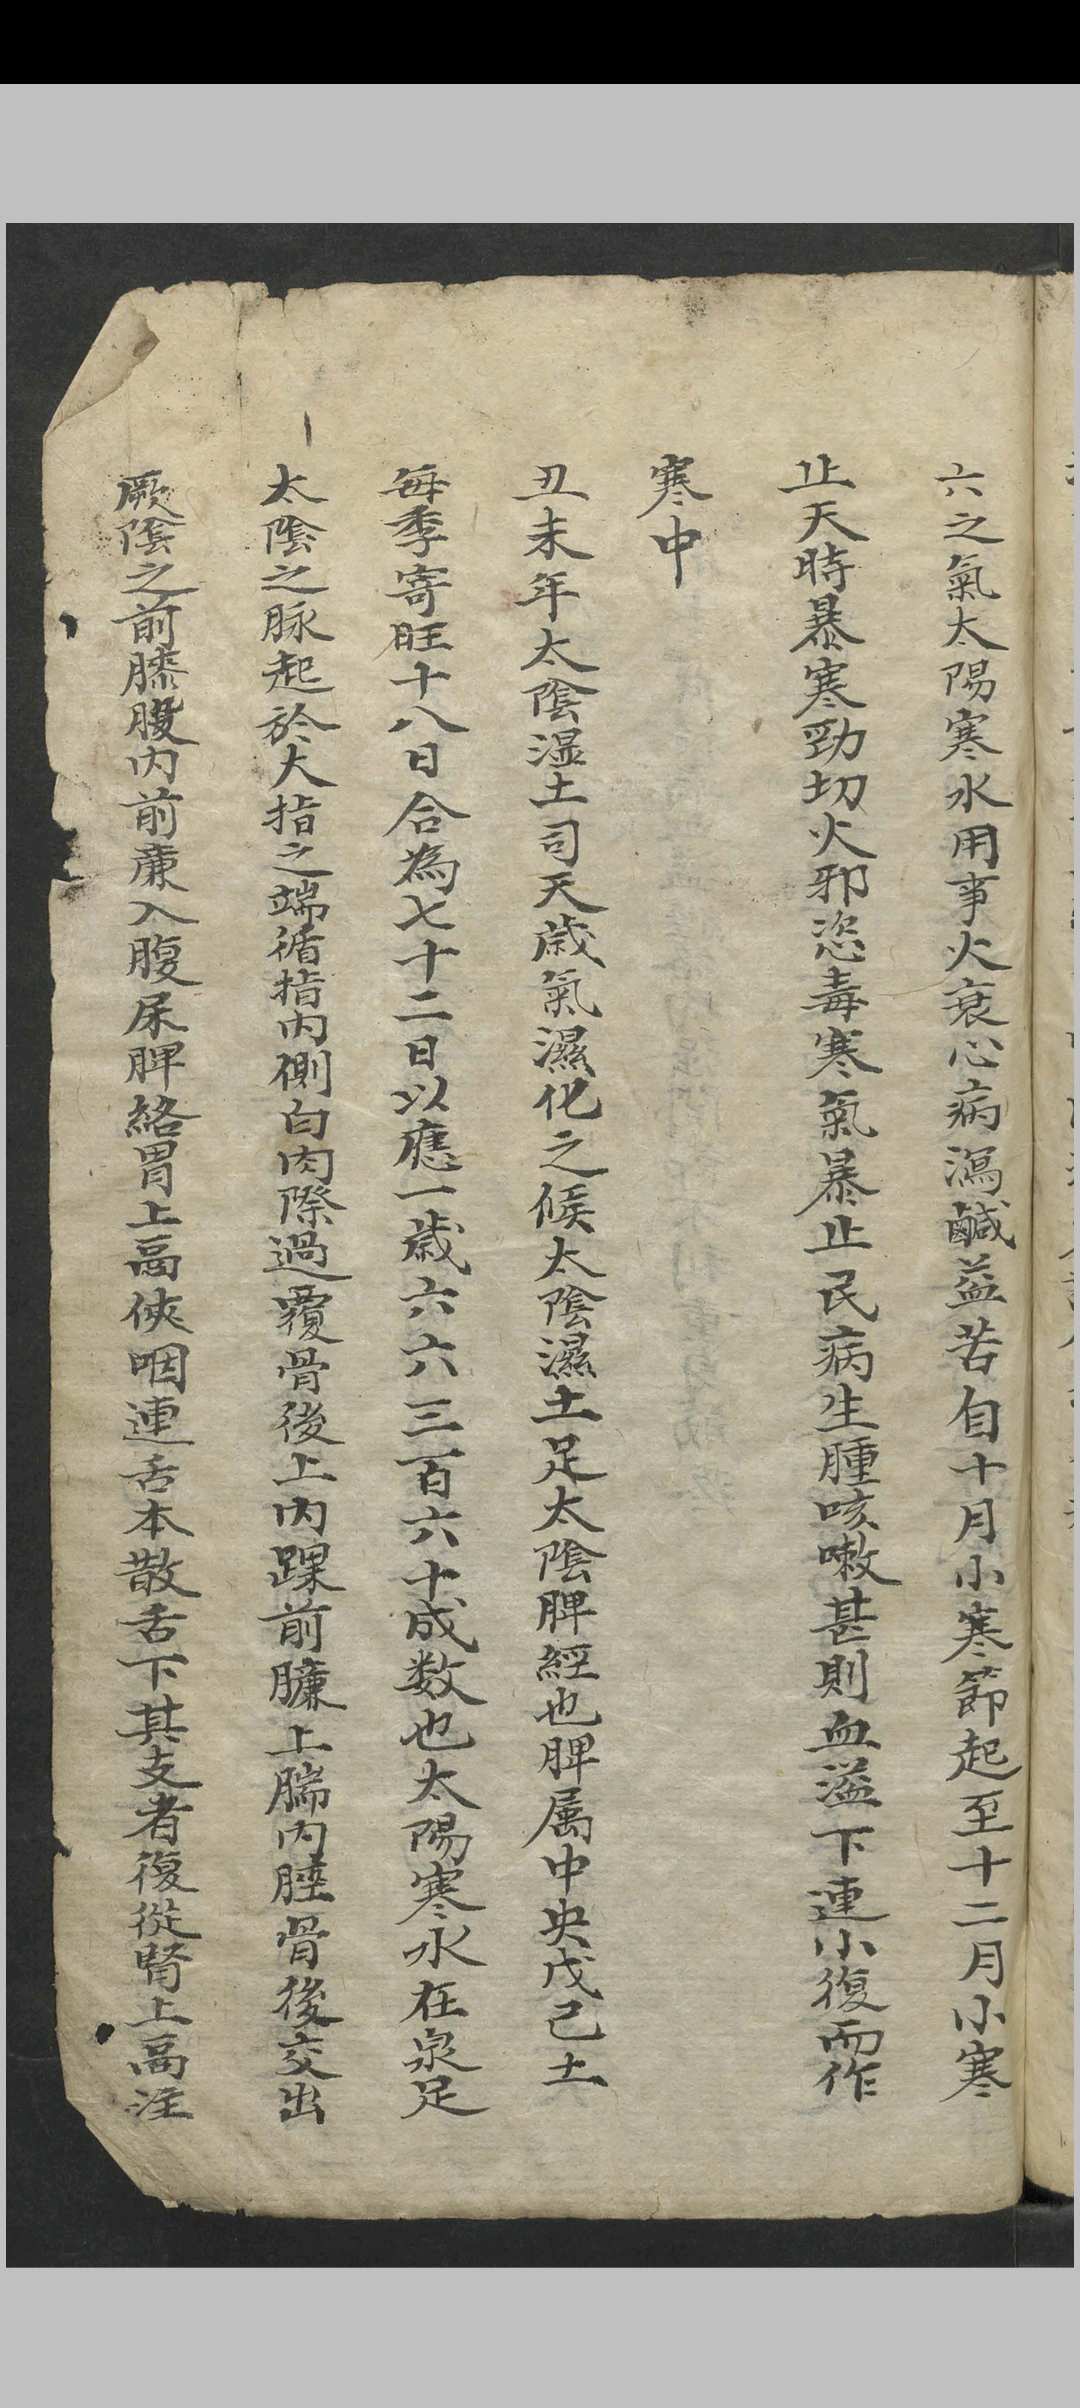 六之氣太陽寒水用事火衰心病瀉鹹益苦自十月小寒節起至十二月小寒
止天時暴寒勁切火邪恣毒寒氣暴止民病生腫咳嗽甚則血溢下連小復而作
寒中
丑未年太陰湿土司天歲氣濕化之候太陰濕土足太陰脾經也脾属中央戊己土
每季寄旺十八日合為七十二日以應一歲六六三百六十成数也太陽寒水在泉足
太陰之脉起於大指之端循指内側白肉際過覈骨後上内踝前臁上腨内脛骨後交出
厥陰之前膝腹内前廉入腹屎脾絡胃上鬲俠咽連舌本散舌下其支者復從腎上鬲注